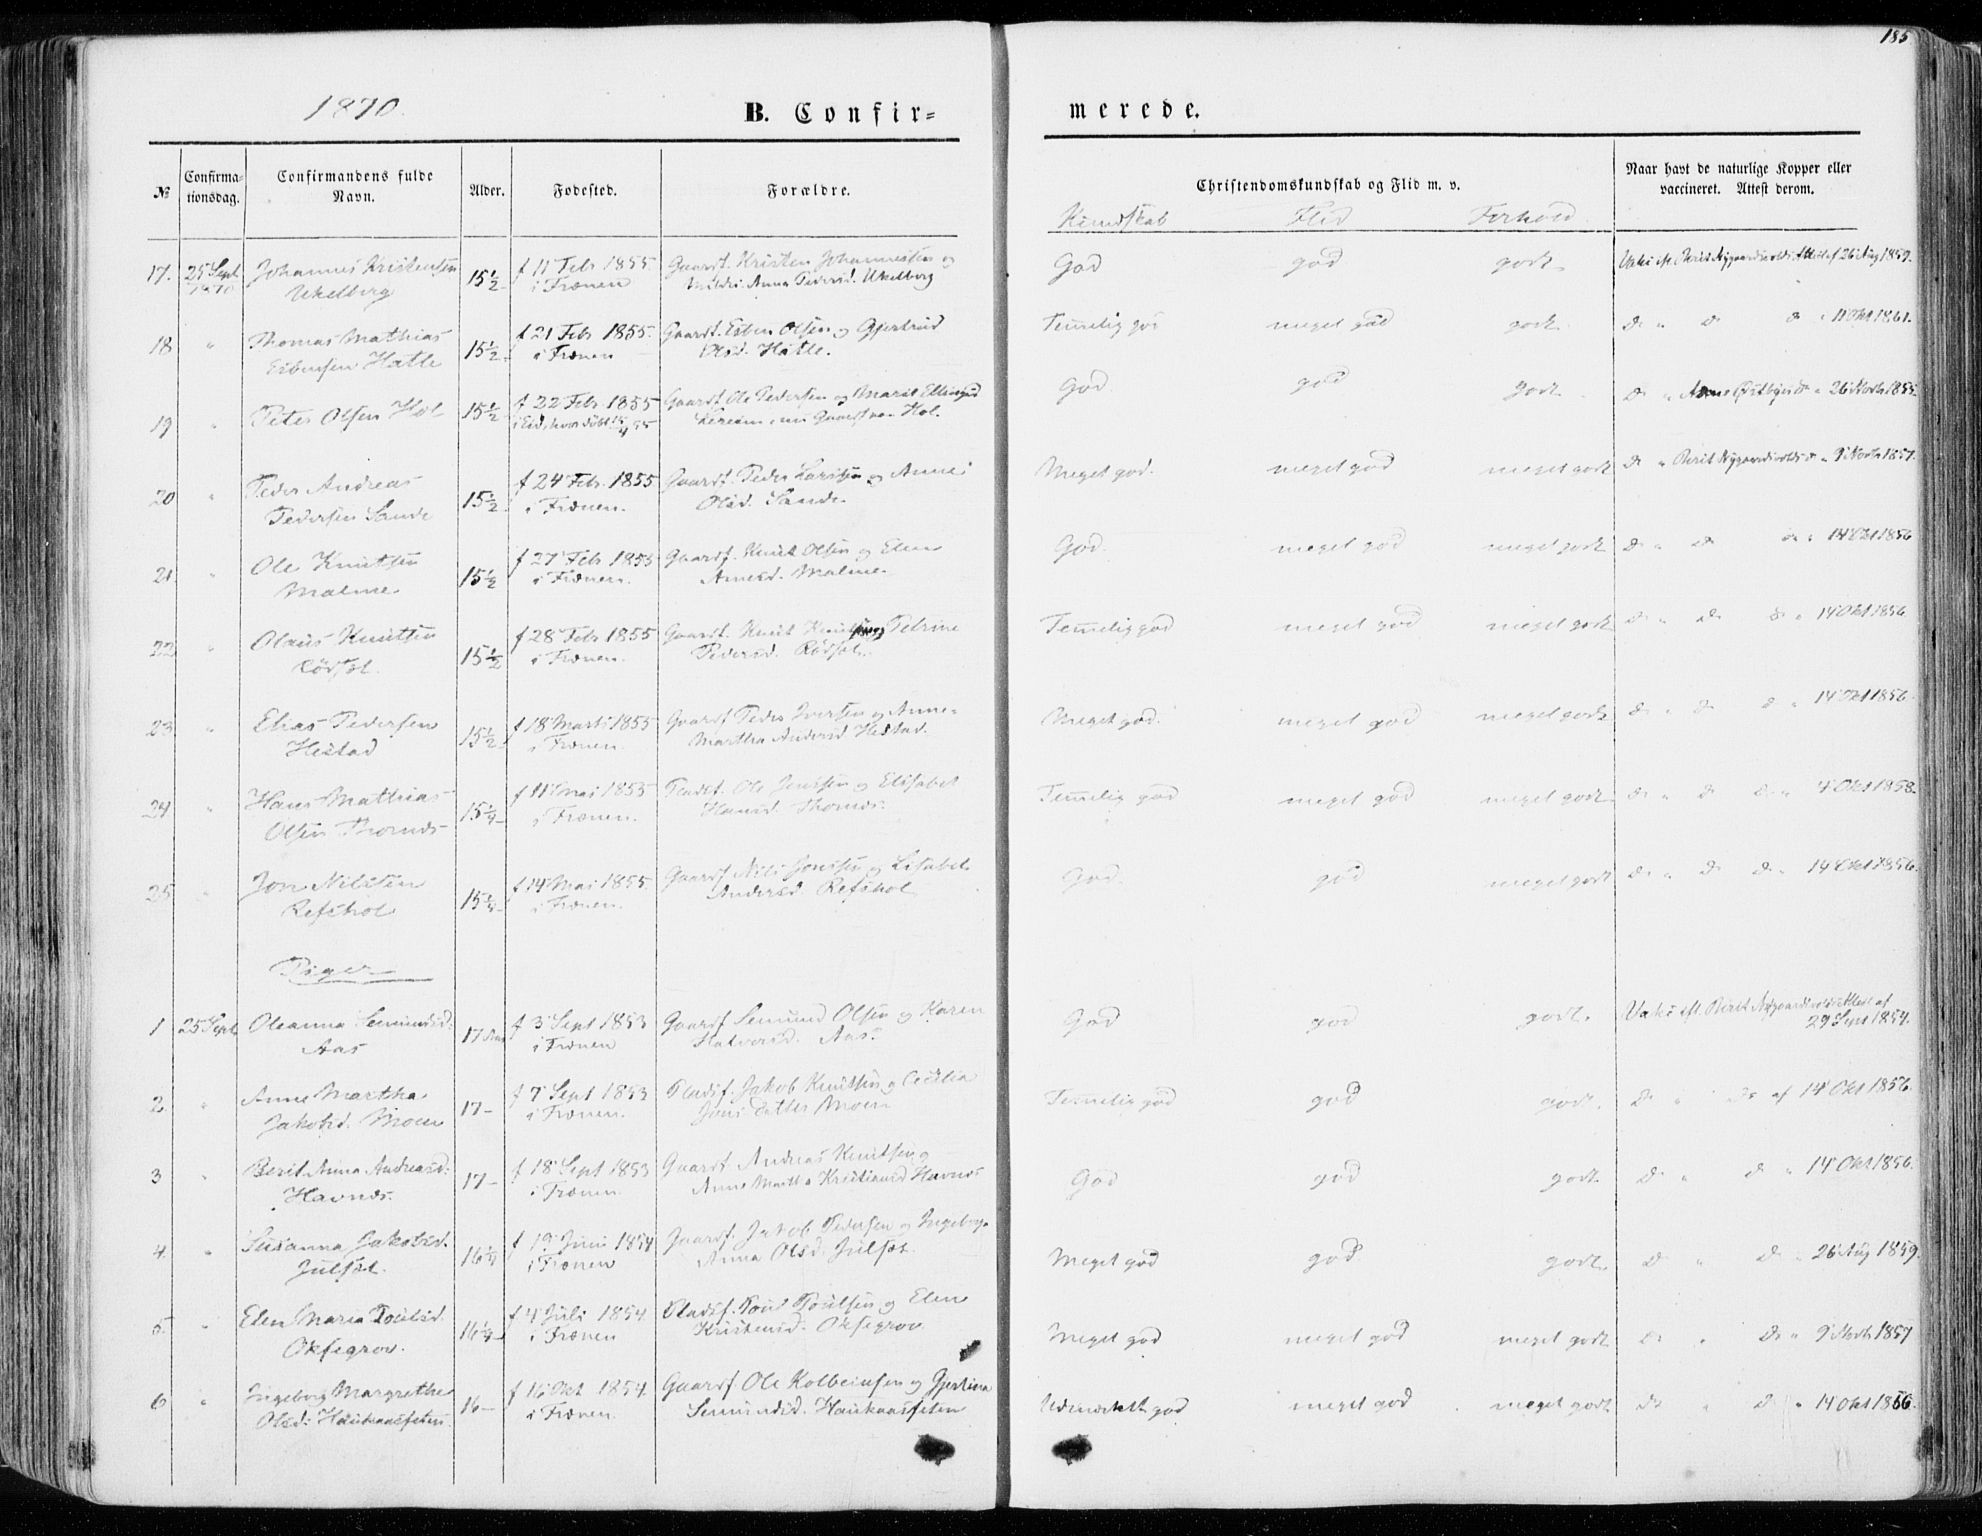 185
1870.
B. Confir-
merede.
№
Confirma-
tionsdag.
Confirmandens fulde
Navn.
Alder.
Fødested.
Forældre.
Christendomskundskab og Flid m. v.
Kundskab Flid Forhold.
Naar havt de naturlige Kopper eller
vaccineret. Attest derom.
17. 25 Sept 1870 Johannes Kristensen
Ukelberg
15½ f 11 Febr 1855.
i Frænen
Gaardf. Kristen Johannessen og
Anna Pedersd. Ukelberg
God god godt. 26 Aug 1859.
18 " Thomas Mathias
Esbensen Hatle
15½ f 21 Febr 1855.
i Frænen
Gaardf. Esben Olsen og Gjertrud
Olsd. Hatle.
Temelig god meget god godt. D° " D° D° " 11 Okt 1861.
19 " Peter Olsen Hol
15½ f 22 Febr 1855
i Eid, hvor døbt 15/4 55
Gaardf. Ole Pedersen og Marit Ellingsd
nu Gaardf paa Hol.
God god godt. D° " 26 Novbr 1855
20 " Peder Andreas
Pedersen Sande
15½ f 24 Febr. 1855
i Frænen.
Gaardf. Peder Larssen og Anne
Olsd. Sande
Meget god. meget god meget godt D° " Berit Nygaardsvolds D° " 9 Novbr 1857.
21 " Ole Knutsen
Malme
15½ f 27 Febr 1855
i Frænen.
Gaardf. Knut Olsen og Elen
Arnesd. Malme.
God. meget god meget godt D° " D° D° " 14 Okt 1856
22 " Olaus Knutsen
Rødsæt.
15½ f 28 Febr 1855
i Frænen.
Gaardf. Knut Knutsen og Petrine
Pedersd. Rødsæt.
Temelig god meget god meget godt D° " D° D° " 14 Okt 1856
23 " Elias Pedersen
Hestad
15½ f 18 Marts 1855
i Frænen.
Gaardf Peder Iversen og Anne
Martha Andersd Hestad.
Meget god. meget god meget godt D° " D° D° " 14 Okt 1856.
24 " Hans Mathias
Olsen Thornæs
15¼ f 11 Mai 1855
i Frænen.
Pladsf. Ole Jenssen og Elisabet
Hansd. Thornæs.
Temelig god meget god meget godt D° " D° D° " 4 Okt 1858.
25 " Jon Nilssen
Refshol
15¼ f 14 Mai 1855.
i Frænen.
Gaardf Nils Jonssen og Lisabet
Andersd Refshol
God. god meget godt D° " D° D° " 14 Okt 1856.
Piger
1 25 Sept Oleanna Semundsd.
Aas
17 Aar f 3 Sept 1853
i Frænen
Gaardf Semund Olsen og Karen
Halvorsd. Aas.
God god godt. Berit Nygaardsvolds Attest af
29 Sept 1854.
2. " Anne Martha
Jakobsd. Moen
17- f 7 Sept 1853
i Frænen.
Pladsf. Jakob Knutsen og Cecilia
Jonsdatter Moen
Temelig god god godt. D° " D° af 14 Okt 1856.
3 " Berit Anna Andreasd.
Havnæs.
17- f 18 Sept 1853
i Frænen.
Gaardf Andreas Knutsen og
Anne Martha Kristiansd Havnæs
God god godt. D° " D° " 14 Okt 1856.
4. " Susanna Jakobsd.
Julsæt.
16¼ f 19 Juni 1854
i Frænen
Gaardf. Jakob Pedersen og Ingeborg
Anna Olsd. Julsæt.
Meget god god godt. D° " D° " 26 Aug 1859.
5. " Elen Maria Poulsd.
Oksegrov.
16¼ f 4 Juli 1854.
i Frænen
Pladsf. Poul Poulsen og Elen
Kristensd. Oksegrov
Meget god meget god meget godt D° " D° " 9 Novbr 1857
6 " Ingeborg Margrethe
Olsd. Haukaassæten.
16- f 16 Okt 1854.
i Frænen.
Gaardf. Ole Kolbeinsen og Gjertina
Semundsd. Haukaassæten
Udmærket god meget god meget godt D° " D° " 14 Okt 1856.